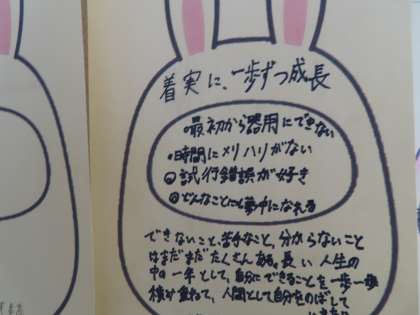 着実に、一歩ずつ成長
•最初から器用にできない
•時間にメリハリがない
◎試行錯誤が好き
◎どんなことにも夢中になれる
できないこと、苦手なこと、分からないこと
はまだまだたくさんある。長い人生の
中の一年として、自分にできることを一歩一歩
積み重ねて、人間として自分をのばして